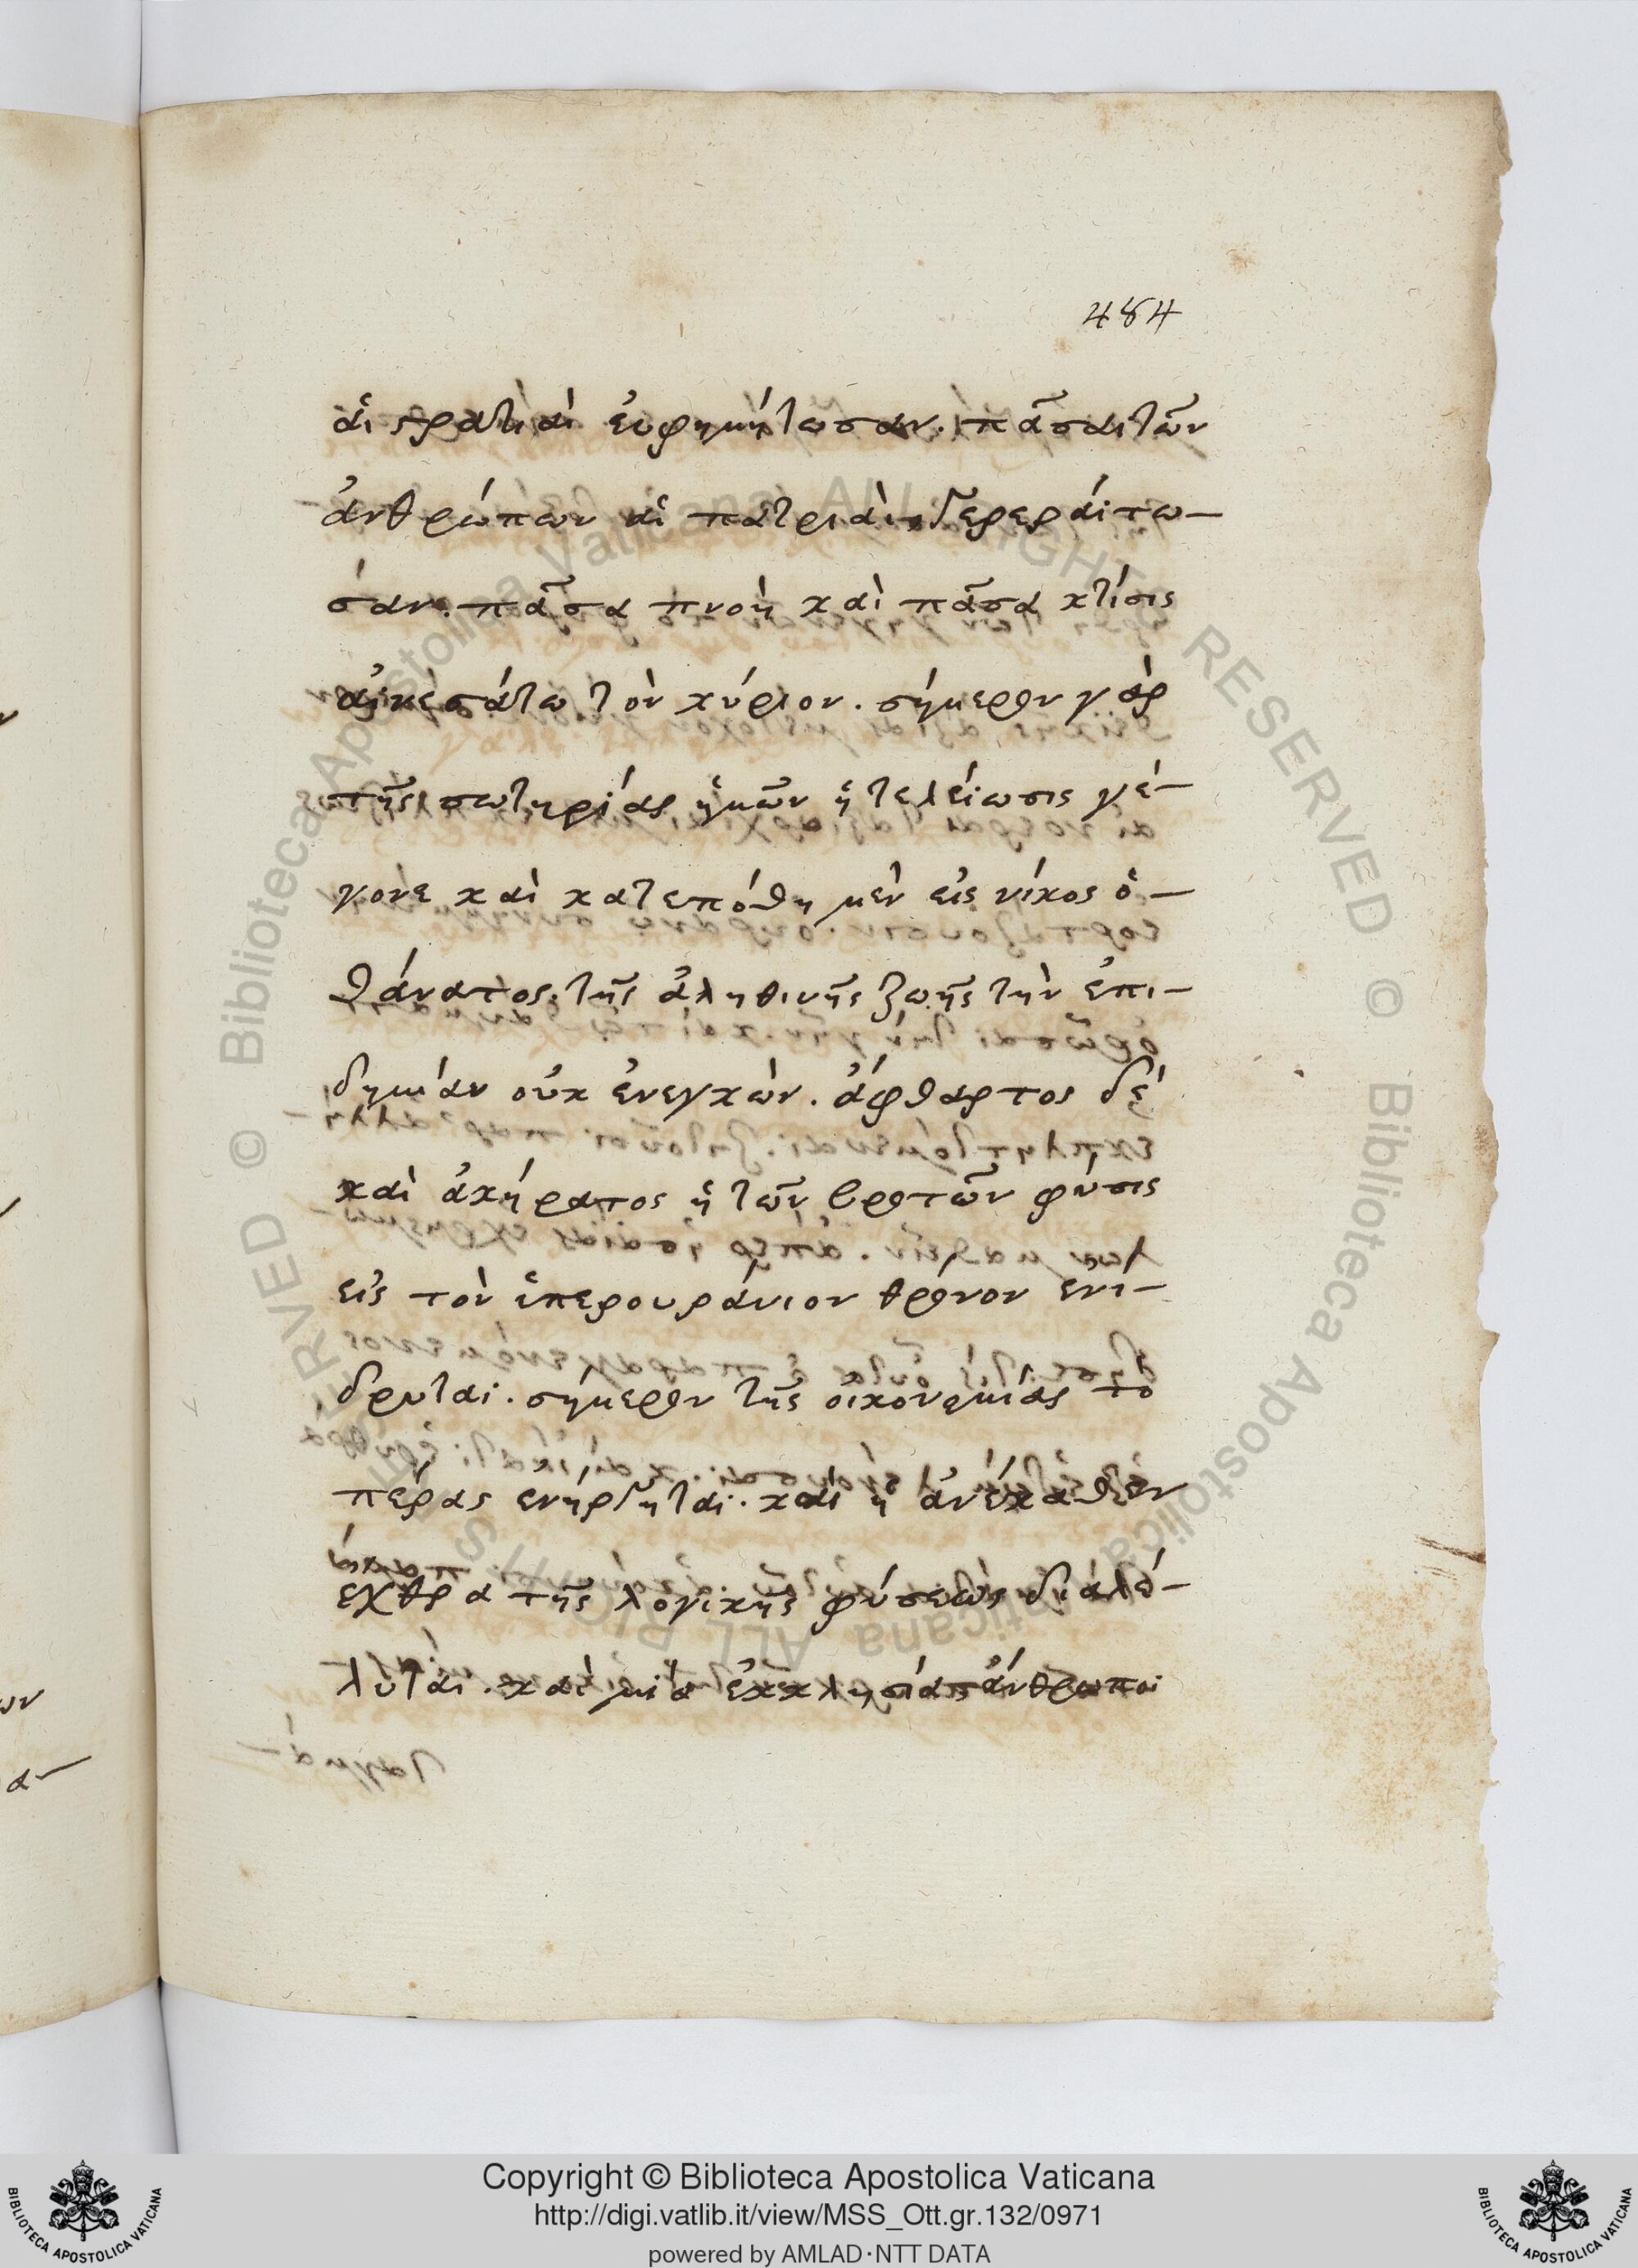 484
αἱ στρατιαὶ εὐφημήτωσαν. πᾶσαι τῶν
ἀνθρώπων αἱ πατριαὶ γερεράιτω-
σάν. πᾶσα πνοὴ καὶ πᾶσα κτίσις
αἰνεσάτω τὸν κύριον. σήμερον γὰρ
τῆς σωτηρίας ἡμῶν ἡ τελείωσις γέ-
γονε καὶ κατεπόθη μὲν εἰς νίκος ὁ-
θάνατος. τῆς ἀληθινῆς ζωῆς τὴν ἐπι-
δημίαν οὐκ ἐνεγκὼν. ἄφθαρτος δὲ
καὶ ἀκήρατος ἡ τῶν βροτῶν φύσις
εἰς τὸν ὑπερουράνιον θρόνον ἐνί-
δρυται. σήμερον τῆς οἰκονομίας το
πέρας ενήργηται. καὶ ἡ ἀνέκαθεν
εχθρα τῆς λογικῆς φύσεως διαλέ-
λυται. καὶ μία ἐκκλησίας ἄνθρωποι
Copyright © Biblioteca Apostolica Vaticana
http://digi.vatlib.it/view/MSS_Ott.gr.132/0971
powered by AMLAD·NTT DATA
BIBLIOTECA APOSTOLICA VATICANA
BIBLIOTECA APOSTOLICA VATICANA